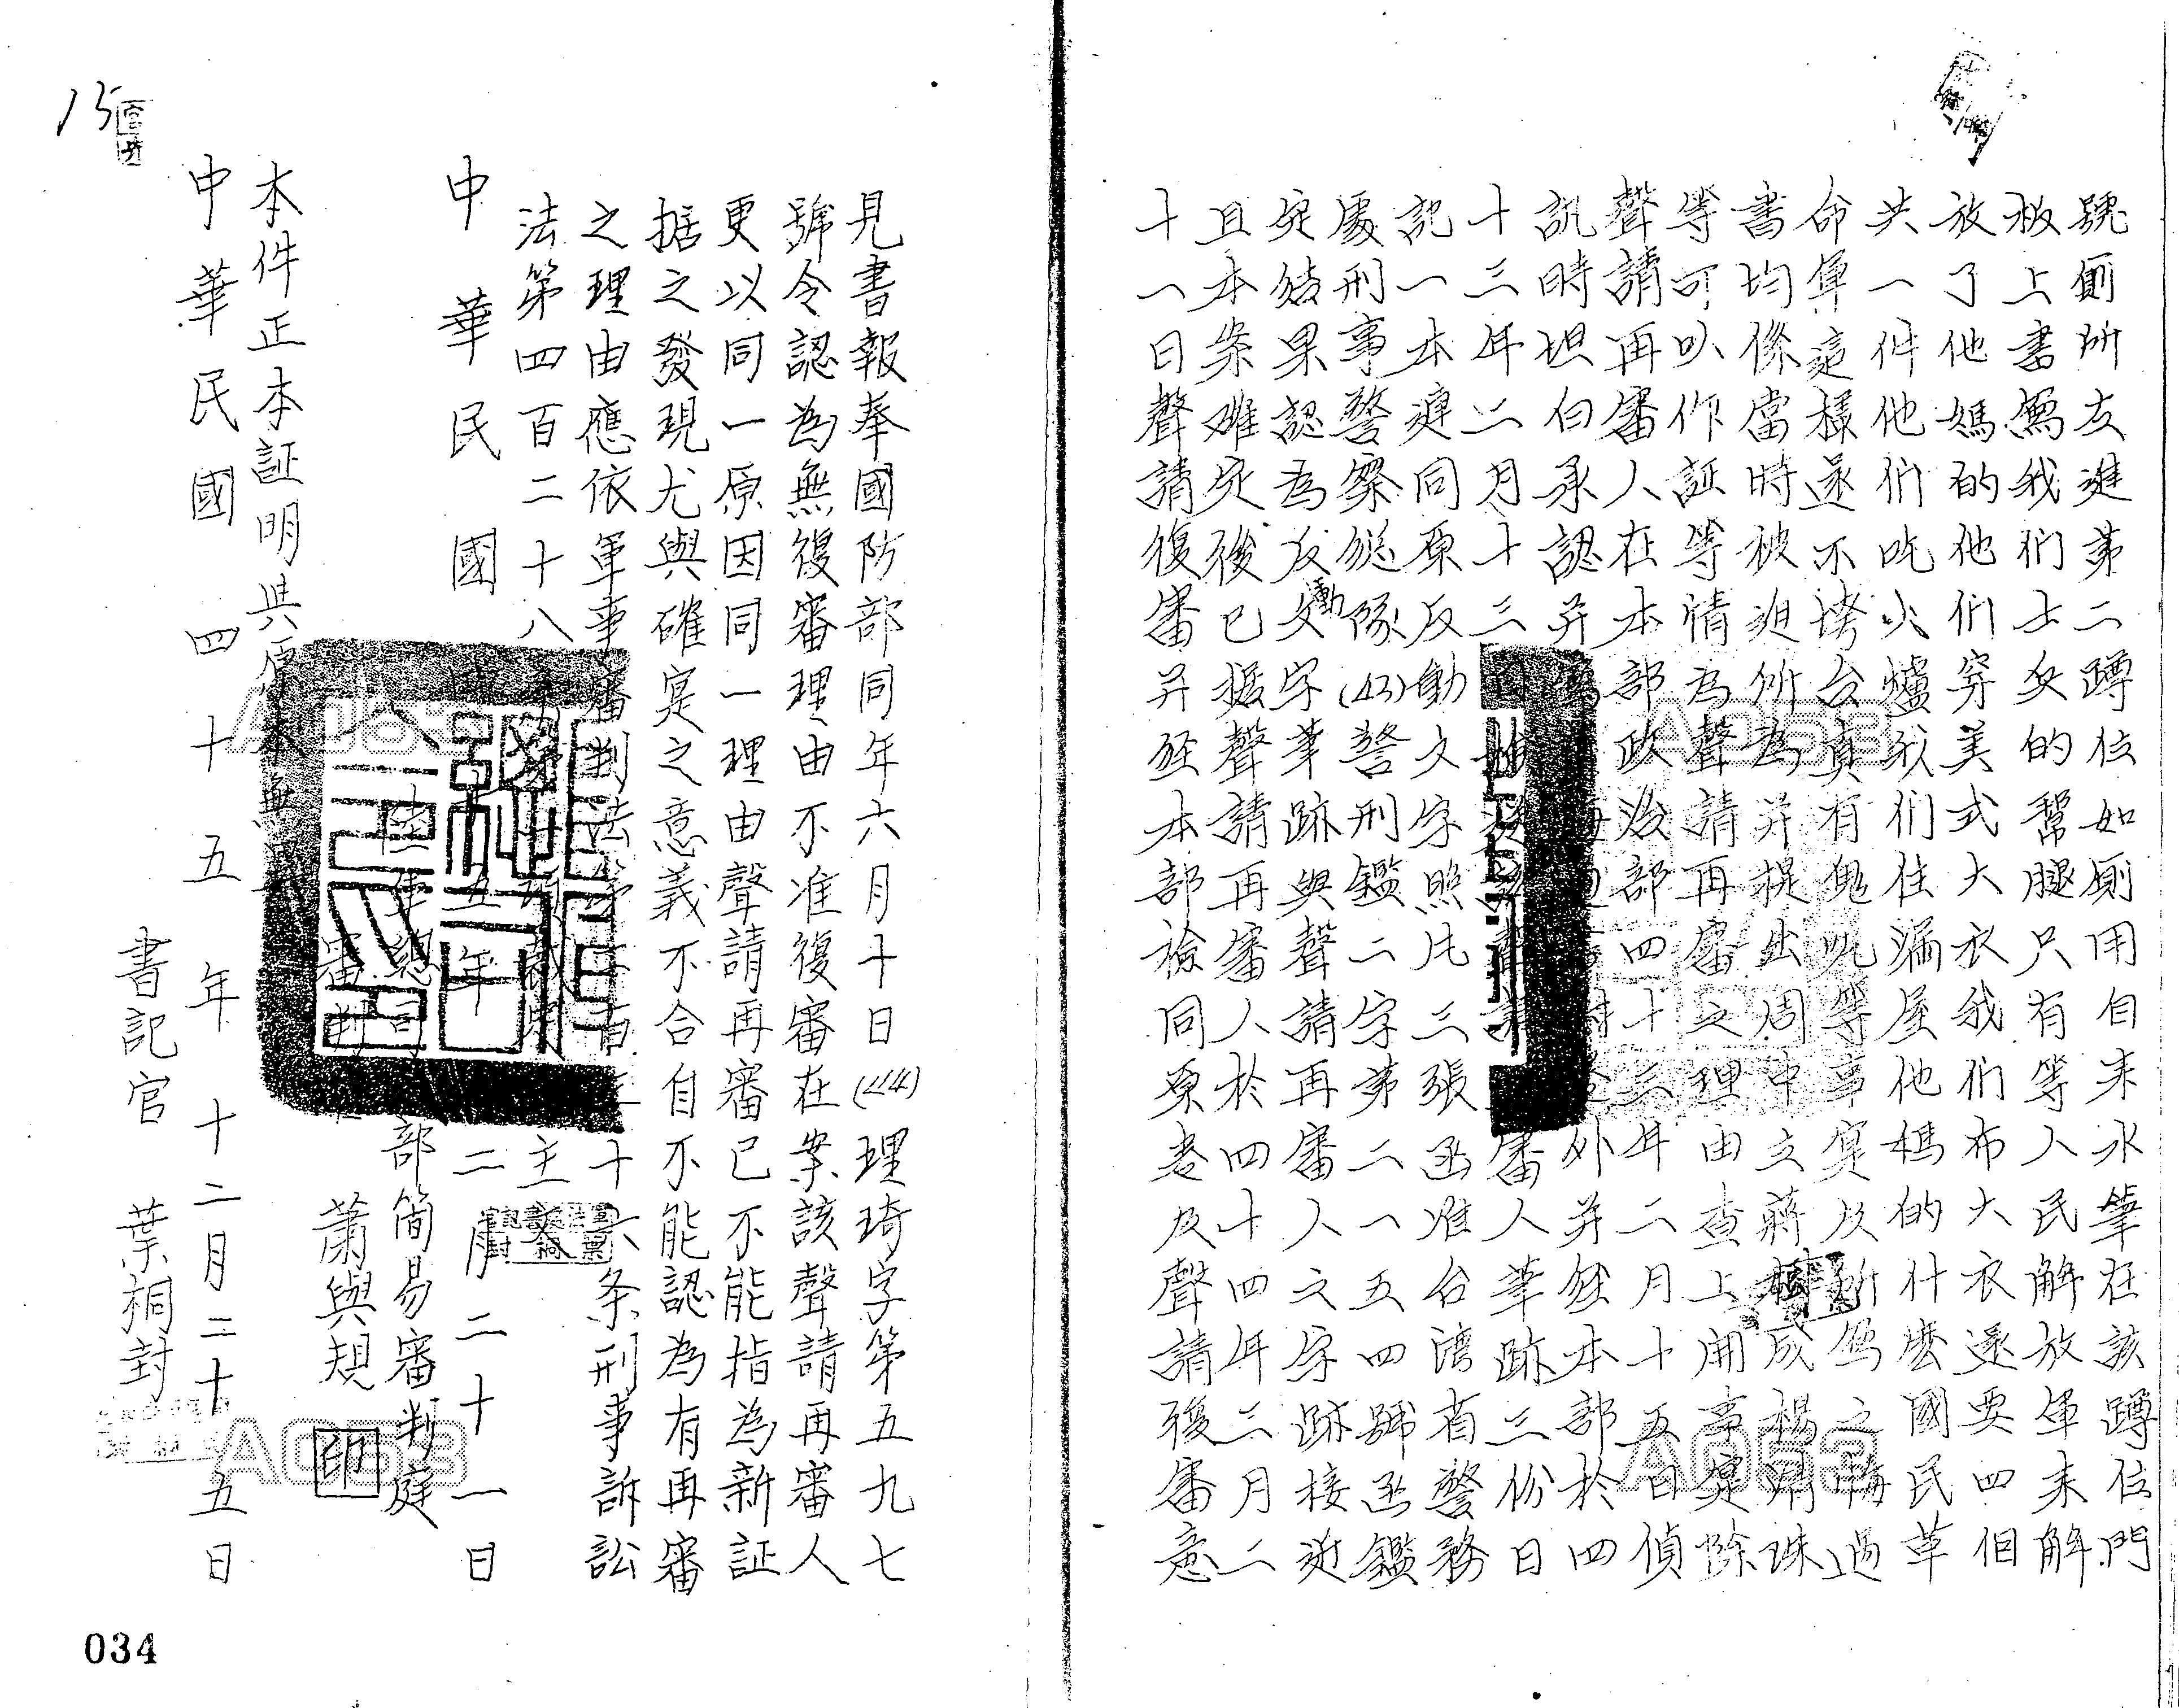 號厠所左進第二蹲位如厠用自來水筆在該蹲位門
板上書無我们士兵的幫腿只有等人民解放軍來解
放了他媽的他们穿美式大衣我们布大衣還要四個
共一件他们吃火爐我们住漏屋他媽的什麼國民革
命軍這樣還不垮台真有鬼呢等事実及所為之悔過
書均係當時被迫所為并提出周中立蔣 成楊炳珠
等可以作証等情為聲請再審之理由查上開事実除
聲請再審人在本部政治部四十三年二月十五日偵
訊時坦白承認并 外并經本部於四
十三年二月十三 審人筆跡三份日
記一本連同原反動文字照片三張函准台灣省警務
處刑事警察總隊(43)警刑鑑二字第二一五四號函鑑
定結果認為反動文字筆跡與聲請再審人之文字跡接近
且本案確定後已據聲請再審人於四十四年三月二
十一日聲請復審并經本部檢同原卷及聲請復審意
見書報奉國防部同年六月十日(44)理琦字第五九七
號令認為無復審理由不准復審在案該聲請再審人
更以同一原因同一理由聲請再審已不能指為新証
据之發現尤與確実之意義不合自不能認為有再審
之理由應依軍事審判法第 百 十六条刑事訴訟
法第四百二十八 主文
中華民國 五年 二月二十一日
陸軍總司 部簡易審判庭
審判 蕭與規 印
本件正本証明與原本無異
中華民國四十五年十二月二十五日
書記官 葉桐封
15
034
A053
A053
A053
A053